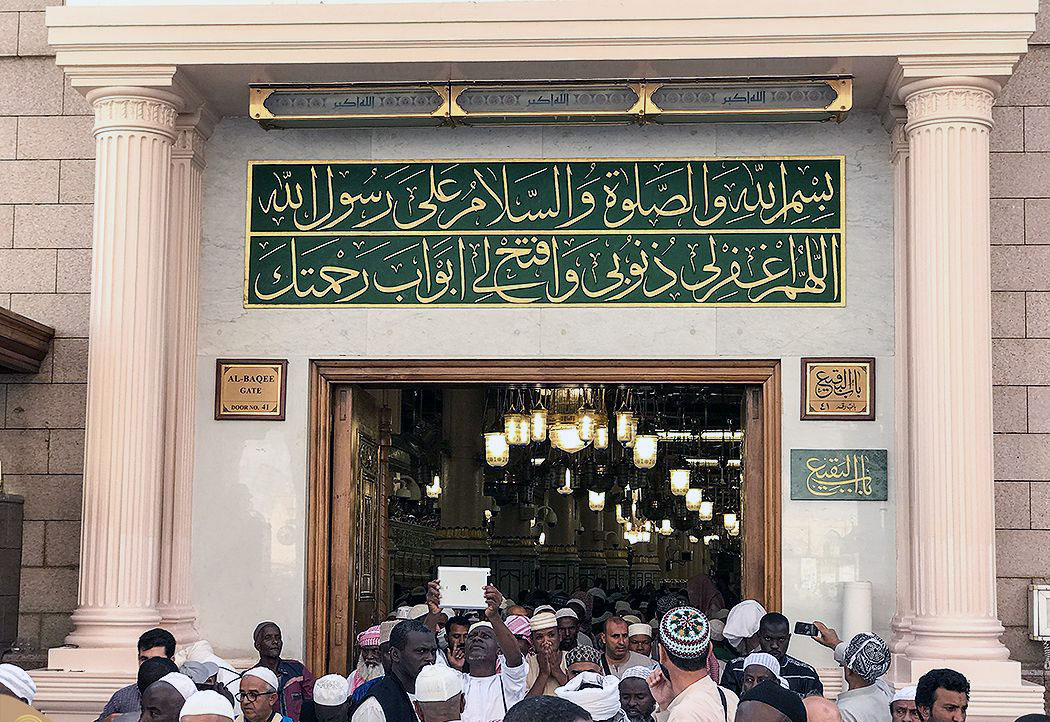 الله اكبر الله اكبر الله اكبر
بِسْمِ اللهِ وَالصَّلوة وَالسَّلامُ عَلىَ رَسُول الله
اللّهُمَّ اغْفِرْلِى ذُنوُبىِ وَافتَحْ لِى ابْوَابَ رَحْمَتِكَ
AL-BAQEE
GATE
DOOR NO. 41
باب البقيع
باب رقم ٤١
باب البقيع